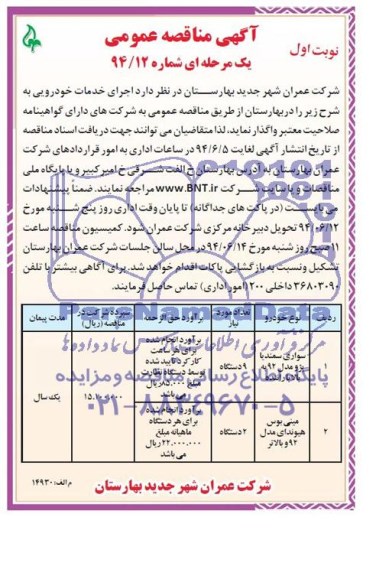 آگهی مناقصه عمومی
نوبت اول
یک مرحله ای شماره ۹۴/۱۲
شرکت عمران شهر جدید بهارستان در نظر دارد اجرای خدمات خودرویی به
شرح زیر را در بهارستان از طریق مناقصه عمومی به شرکت های دارای گواهینامه
صلاحیت معتبر واگذار نماید، لذا متقاضیان می توانند جهت دریافت اسناد مناقصه
از تاریخ انتشار آگهی لغایت ۹۴/۶/۵ در ساعات اداری به امور قراردادهای شرکت
عمران بهارستان به آدرس بهارستان خ الفت شرقی خ امیرکبیر و یا پایگاه ملی
مناقصات و یا سایت شرکت www.BNT.ir مراجعه نمایند. ضمناً پیشنهادات
می بایست (در پاکت های جداگانه) تا پایان وقت اداری روز پنج شنبه مورخ
۹۴/۰۶/۱۲ تحویل دبیرخانه مرکزی شرکت عمران شود. کمیسیون مناقصه ساعت
۱۱ صبح روز شنبه مورخ ۹۴/۰۶/۱۴ در محل سالن جلسات شرکت عمران بهارستان
تشکیل و نسبت به بازگشایی پاکات اقدام خواهد شد. برای آگاهی بیشتر با تلفن
۳۶۸۰۳۰۹۰ داخلی ۲۰۰ (امور اداری) تماس حاصل فرمایید.
ردیف نوع خودرو تعداد مورد نیاز برآورد حق الزحمه سپرده شرکت در مناقصه (ریال) مدت پیمان
۱ سواری سمند یا پژو مدل ۹۲ به ۹ دستگاه برآورد انجام شده برای هر ساعت کارکرد تایید شده توسط دستگاه نظارت مبلغ ریال می باشد
۲ مینی بوس هیوندای مدل ۹۲ و بالاتر ۲ دستگاه برآورد انجام شده برای هر دستگاه ماهیانه مبلغ ۲۲.۰۰۰.۰۰۰ ریال می باشد
یک سال
پایگاه اطلاع رسانی مناقصه و مزایده
۰۲۱-۸۸۳۴۹۶۷۰-۵
شرکت عمران شهر جدید بهارستان
م الف: ۱۴۹۳۰